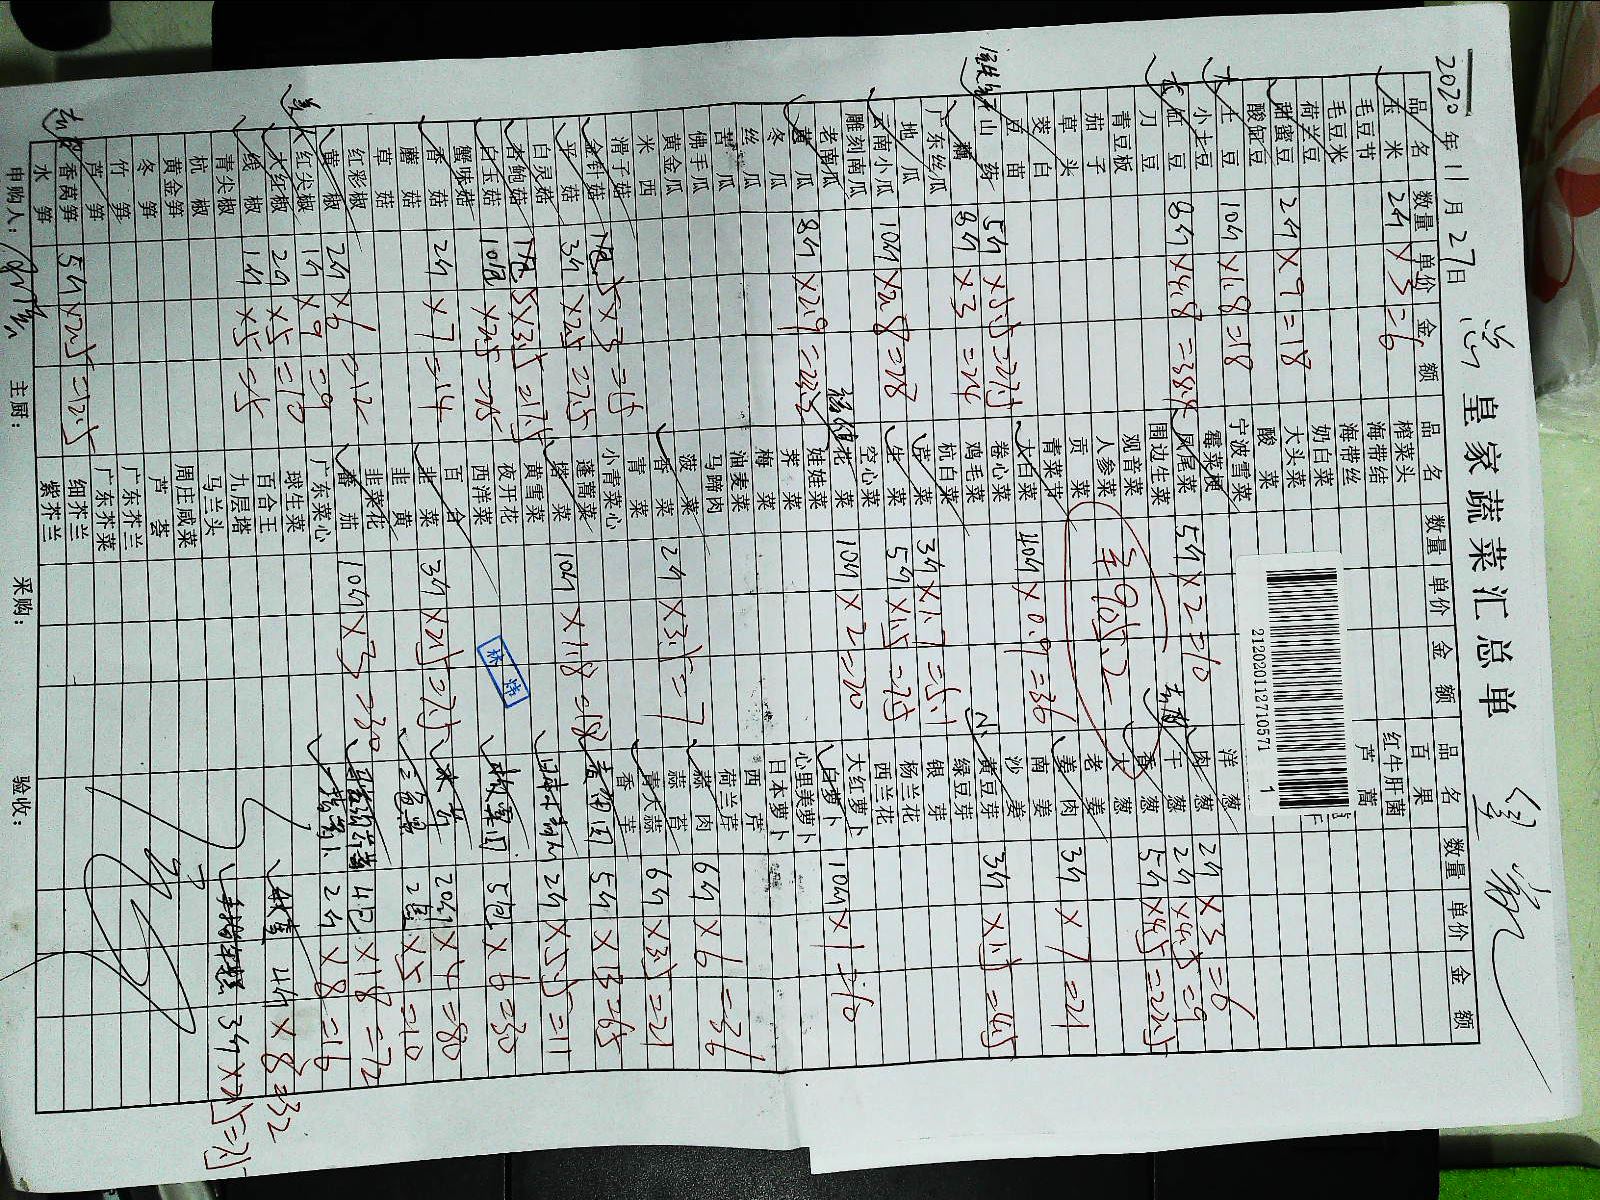 2020年11月27日 总皇家蔬菜汇总单
品名 数量 单价 金额
玉米 2斤×3=6
毛豆节
毛豆米
荷兰豆
甜蜜豆 2斤×9=18
酸豇豆
大土豆 10斤×1.8=18
小土豆
长豇豆 8斤×4.8=38.4
刀豆
青豆板
茄子
草头
茭白
豆苗
铁棍山药 5斤×5.5=27.5
藕 8斤×3=24
广东丝瓜
地瓜
云南小瓜 10斤×2.8=28
雕刻南瓜
老南瓜
黄瓜 8斤×2.9=23.2
冬瓜
丝瓜
苦瓜
佛手瓜
黄金瓜
米西
滑子菇
金针菇 1包 5×3=15
平菇 3斤×2.5=7.5
白灵菇
杏鲍菇 1包 5×3.5=17.5
白玉菇 10包×2.5=25
蟹味菇
香菇 2斤×7=14
蘑菇
草菇
红彩椒
黄椒 2斤×6=12
红尖椒 1斤×9=9
大红椒 2斤×5=10
线椒 1斤×5=5
青尖椒
杭椒
黄金笋
冬笋
竹笋
芦笋
香莴笋 5斤×2.5=12.5
水笋
品名 数量 单价 金额
榨菜头
海带结
海带丝
奶白菜
大头菜
酸菜
宁波雪菜
霉菜梗
凤尾菜 5斤×2=10
围边生菜
观音菜
人参菜
贡菜
¥925.2
青菜菜
大白菜 40斤×0.9=36
卷心菜
鸡毛菜
杭白菜
芹菜 3斤×1.7=5.1
生菜 5斤×1.5=7.5
空心菜
杨花 10斤×2=20
娃娃菜
荠菜
梅菜
油麦菜
马蹄肉
菠菜
香菜 2斤×3.5=7
青菜
小青菜心
蓬蒿菜
塔菜 10斤×1.8=18
黄雪菜
夜开花
西洋菜
百合
韭菜 3斤×2.5=7.5
韭黄
韭菜花
番茄 10斤×3=30
广东菜心
球生菜
百合王
九层塔
马兰头
周庄咸菜
芦荟
广东芥兰
广东芥菜
细芥兰
紫芥兰
品名 数量 单价 金额
百果
红牛肝菌
芦蒿
2120201127105711
洋葱
肉葱 2斤×3=6
干葱 2斤×4.5=9
香葱 5斤×4.5=22.5
大葱
老姜
姜肉 3斤×7=21
南姜
沙姜
黄豆芽 3斤×1.5=4.5
绿豆芽
银芽
杨兰花
西兰花
大红萝卜
白萝卜 10斤×1=10
心里美萝卜
日本萝卜
西芹
荷兰芹
蒜肉 6斤×6=36
蒜苔
青大蒜 6斤×3.5=21
香芋
5斤×13=65
2斤×5.5=11
5包×6=30
20斤×4=80
2×5=10
4包×18=72
2斤×8=16
4斤×8=32
3斤
林炜
申购人: 主厨: 采购: 验收: